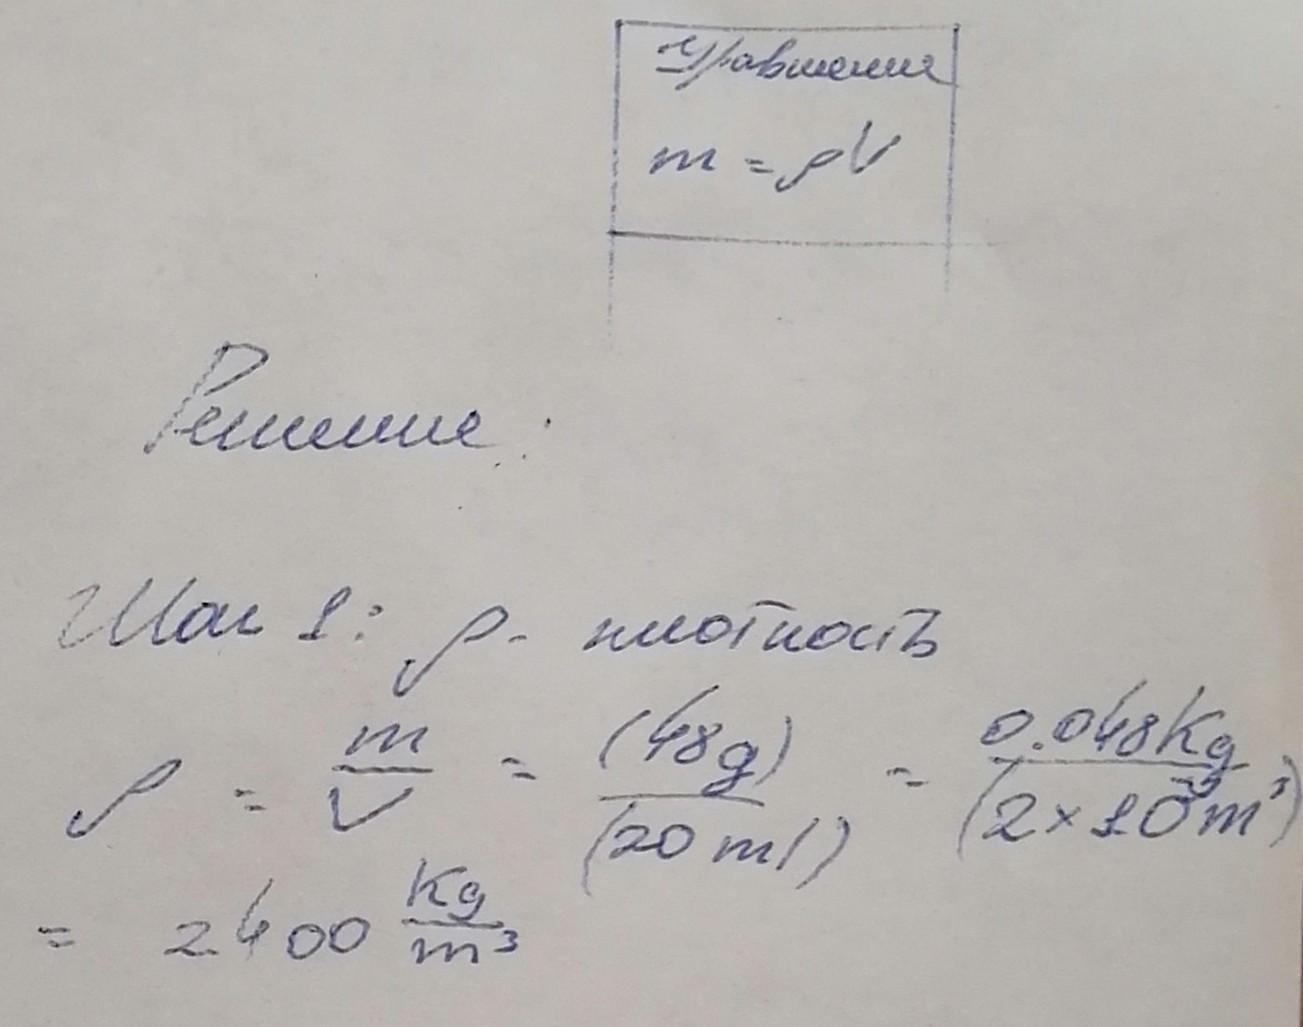 Уравнение
m = ρV
Решение:
Шаг 1: ρ - плотность
ρ = m/V = (48g)/(20 ml) = 0.048Kg/(2×10⁻⁵m³)
= 2400 Kg/m³